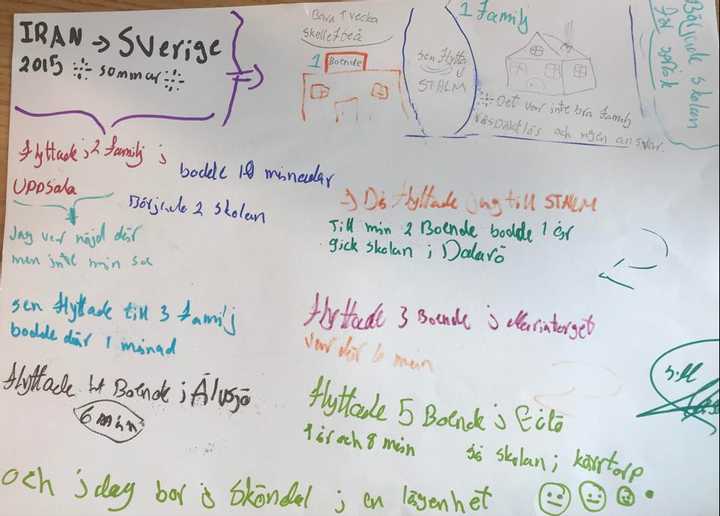 IRAN → Sverige
2015 sommar
Bara 1 vecka
Skellefteå
1 Boende
sen flytta
STHLM
1 Family
Det var inte bra familj
och ingen ansvar.
Började skolan
för språk
flyttade 2 familj i
Uppsala
bodde 10 månader
Började 2 skolan
Jag var nöjd där
men inte min
→ Då flyttade jag till STHLM
Till min 2 Boende bodde 1 år
gick skolan i Dalarö
sen flyttade till 3 familj
bodde där 1 månad
flyttade 3 Boende i Mariatorget
var där 6 mån
flyttade 4 Boende i Älvsjö
6 mån
flyttade 5 Boende i
1 år och 8 mån
skolan i kärrtorp
till
och idag bor i Sköndal i en lägenhet